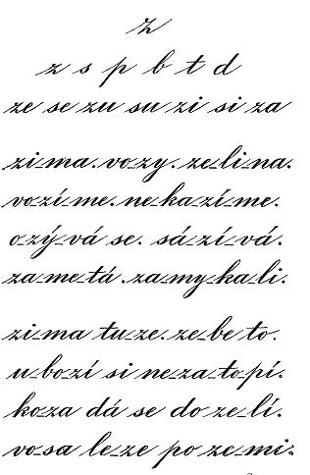 z
z s p b t d
ze se zu su zi si za
zi-ma. vo-zy. ze-li-na.
vo-zí-me. ne-ka-zí-me.
o-zý-vá se. sá-zí-vá.
za-me-tá. za-my-ka-li.
zi-ma tu-ze. ze-be to.
u-bo-zí si ne-za-to-pí.
ko-za dá se do ze-lí.
vo-sa le-ze po ze-mi.